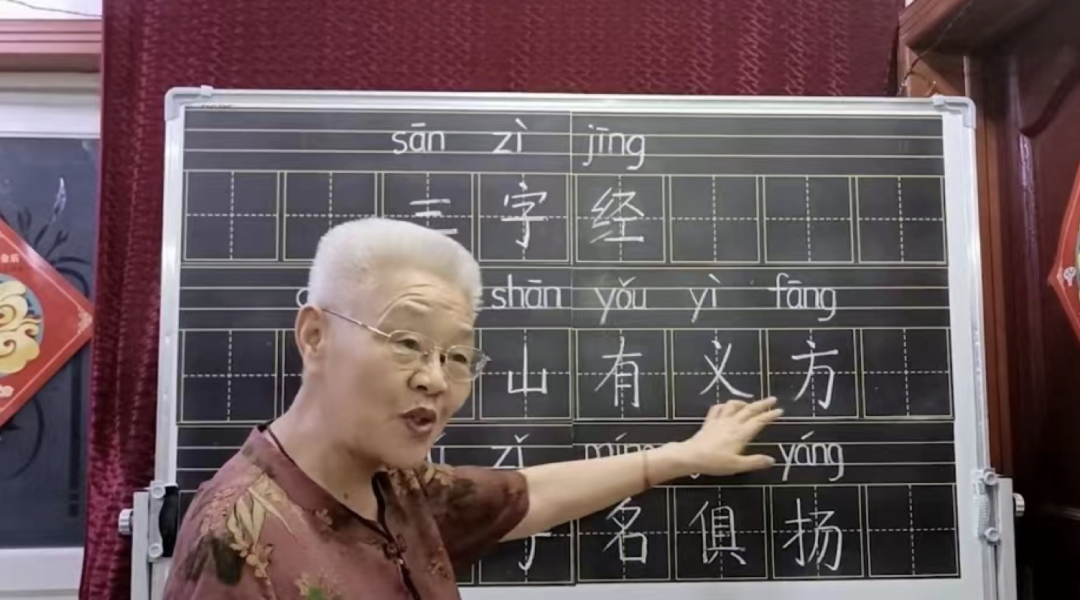 sān zì jīng
三字经
shān yǒu yì fāng
山有义方
zǐ míng yáng
名俱扬